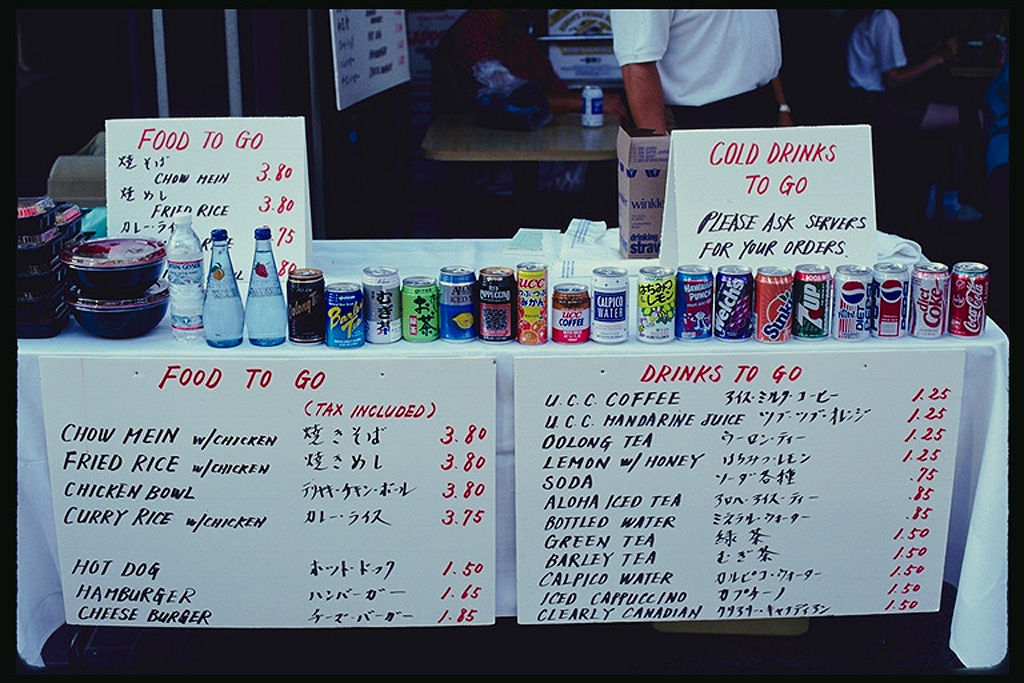 FOOD TO GO
焼そば
CHOW MEIN 3.80
焼めし
FRIED RICE 3.80
カレーライ
.75
COLD DRINKS
TO GO
PLEASE ASK SERVERS
FOR YOUR ORDERS.
winkle
drinking
straw
Barley
Tea
むぎ茶
お茶
ICED
CAPPUCCINO
UCC
つぶつぶ
みかん
UCC
COFFEE
CALPICO
WATER
はちみつ
レモン
HAWAIIAN
PUNCH
Welch's
Sunkist
7UP
PEPSI
DIET
PEPSI
diet
Coke
Coca-Cola
FOOD TO GO
(TAX INCLUDED)
CHOW MEIN w/CHICKEN 焼きそば 3.80
FRIED RICE w/CHICKEN 焼きめし 3.80
CHICKEN BOWL テリヤキ・チキン・ボール 3.80
CURRY RICE w/CHICKEN カレー・ライス 3.75
HOT DOG ホット・ドック 1.50
HAMBURGER ハンバーガー 1.65
CHEESE BURGER チーズ・バーガー 1.85
DRINKS TO GO
U.C.C. COFFEE アイス・ミルク・コーヒー 1.25
U.C.C. MANDARINE JUICE ツブ・ツブ・オレンジ 1.25
OOLONG TEA ウーロン・ティー 1.25
LEMON w/ HONEY はちみつ・レモン 1.25
SODA ソーダ各種 .75
ALOHA ICED TEA アロハ・アイス・ティー .85
BOTTLED WATER ミネラル・ウォーター .85
GREEN TEA 緑茶 1.50
BARLEY TEA むぎ茶 1.50
CALPICO WATER カルピコ・ウォーター 1.50
ICED CAPPUCCINO カプチーノ 1.50
CLEARLY CANADIAN クリアリー・キャナディアン 1.50